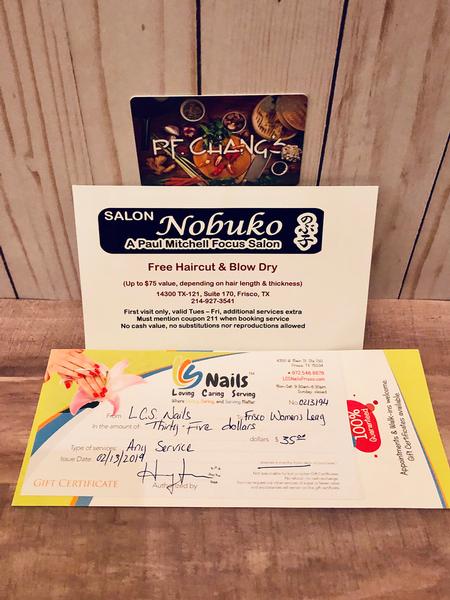 P.F. CHANG'S
SALON Nobuko のぶ子
A Paul Mitchell Focus Salon
Free Haircut & Blow Dry
(Up to $75 value, depending on hair length & thickness)
14300 TX-121, Suite 170, Frisco, TX
214-927-3541
First visit only, valid Tues – Fri, additional services extra
Must mention coupon 211 when booking service
No cash value, no substitutions nor reproductions allowed
LCS Nails™
Loving Caring Serving
Where Loving, Caring, and Serving Matter
Frisco TX 75034
972.546.8878
LCSNailsFrisco.com
Sunday closed
No. 0213194
From L.C.S. Nails To Frisco Womens Leag
In the amount of Thirty-Five dollars dollars $ 35.00
Type of services: Any Service
Issue Date: 02/13/2019
Authorized by
GIFT CERTIFICATE
100% Guaranteed
Appointments & Walk-ins welcome
Gift Certificates available